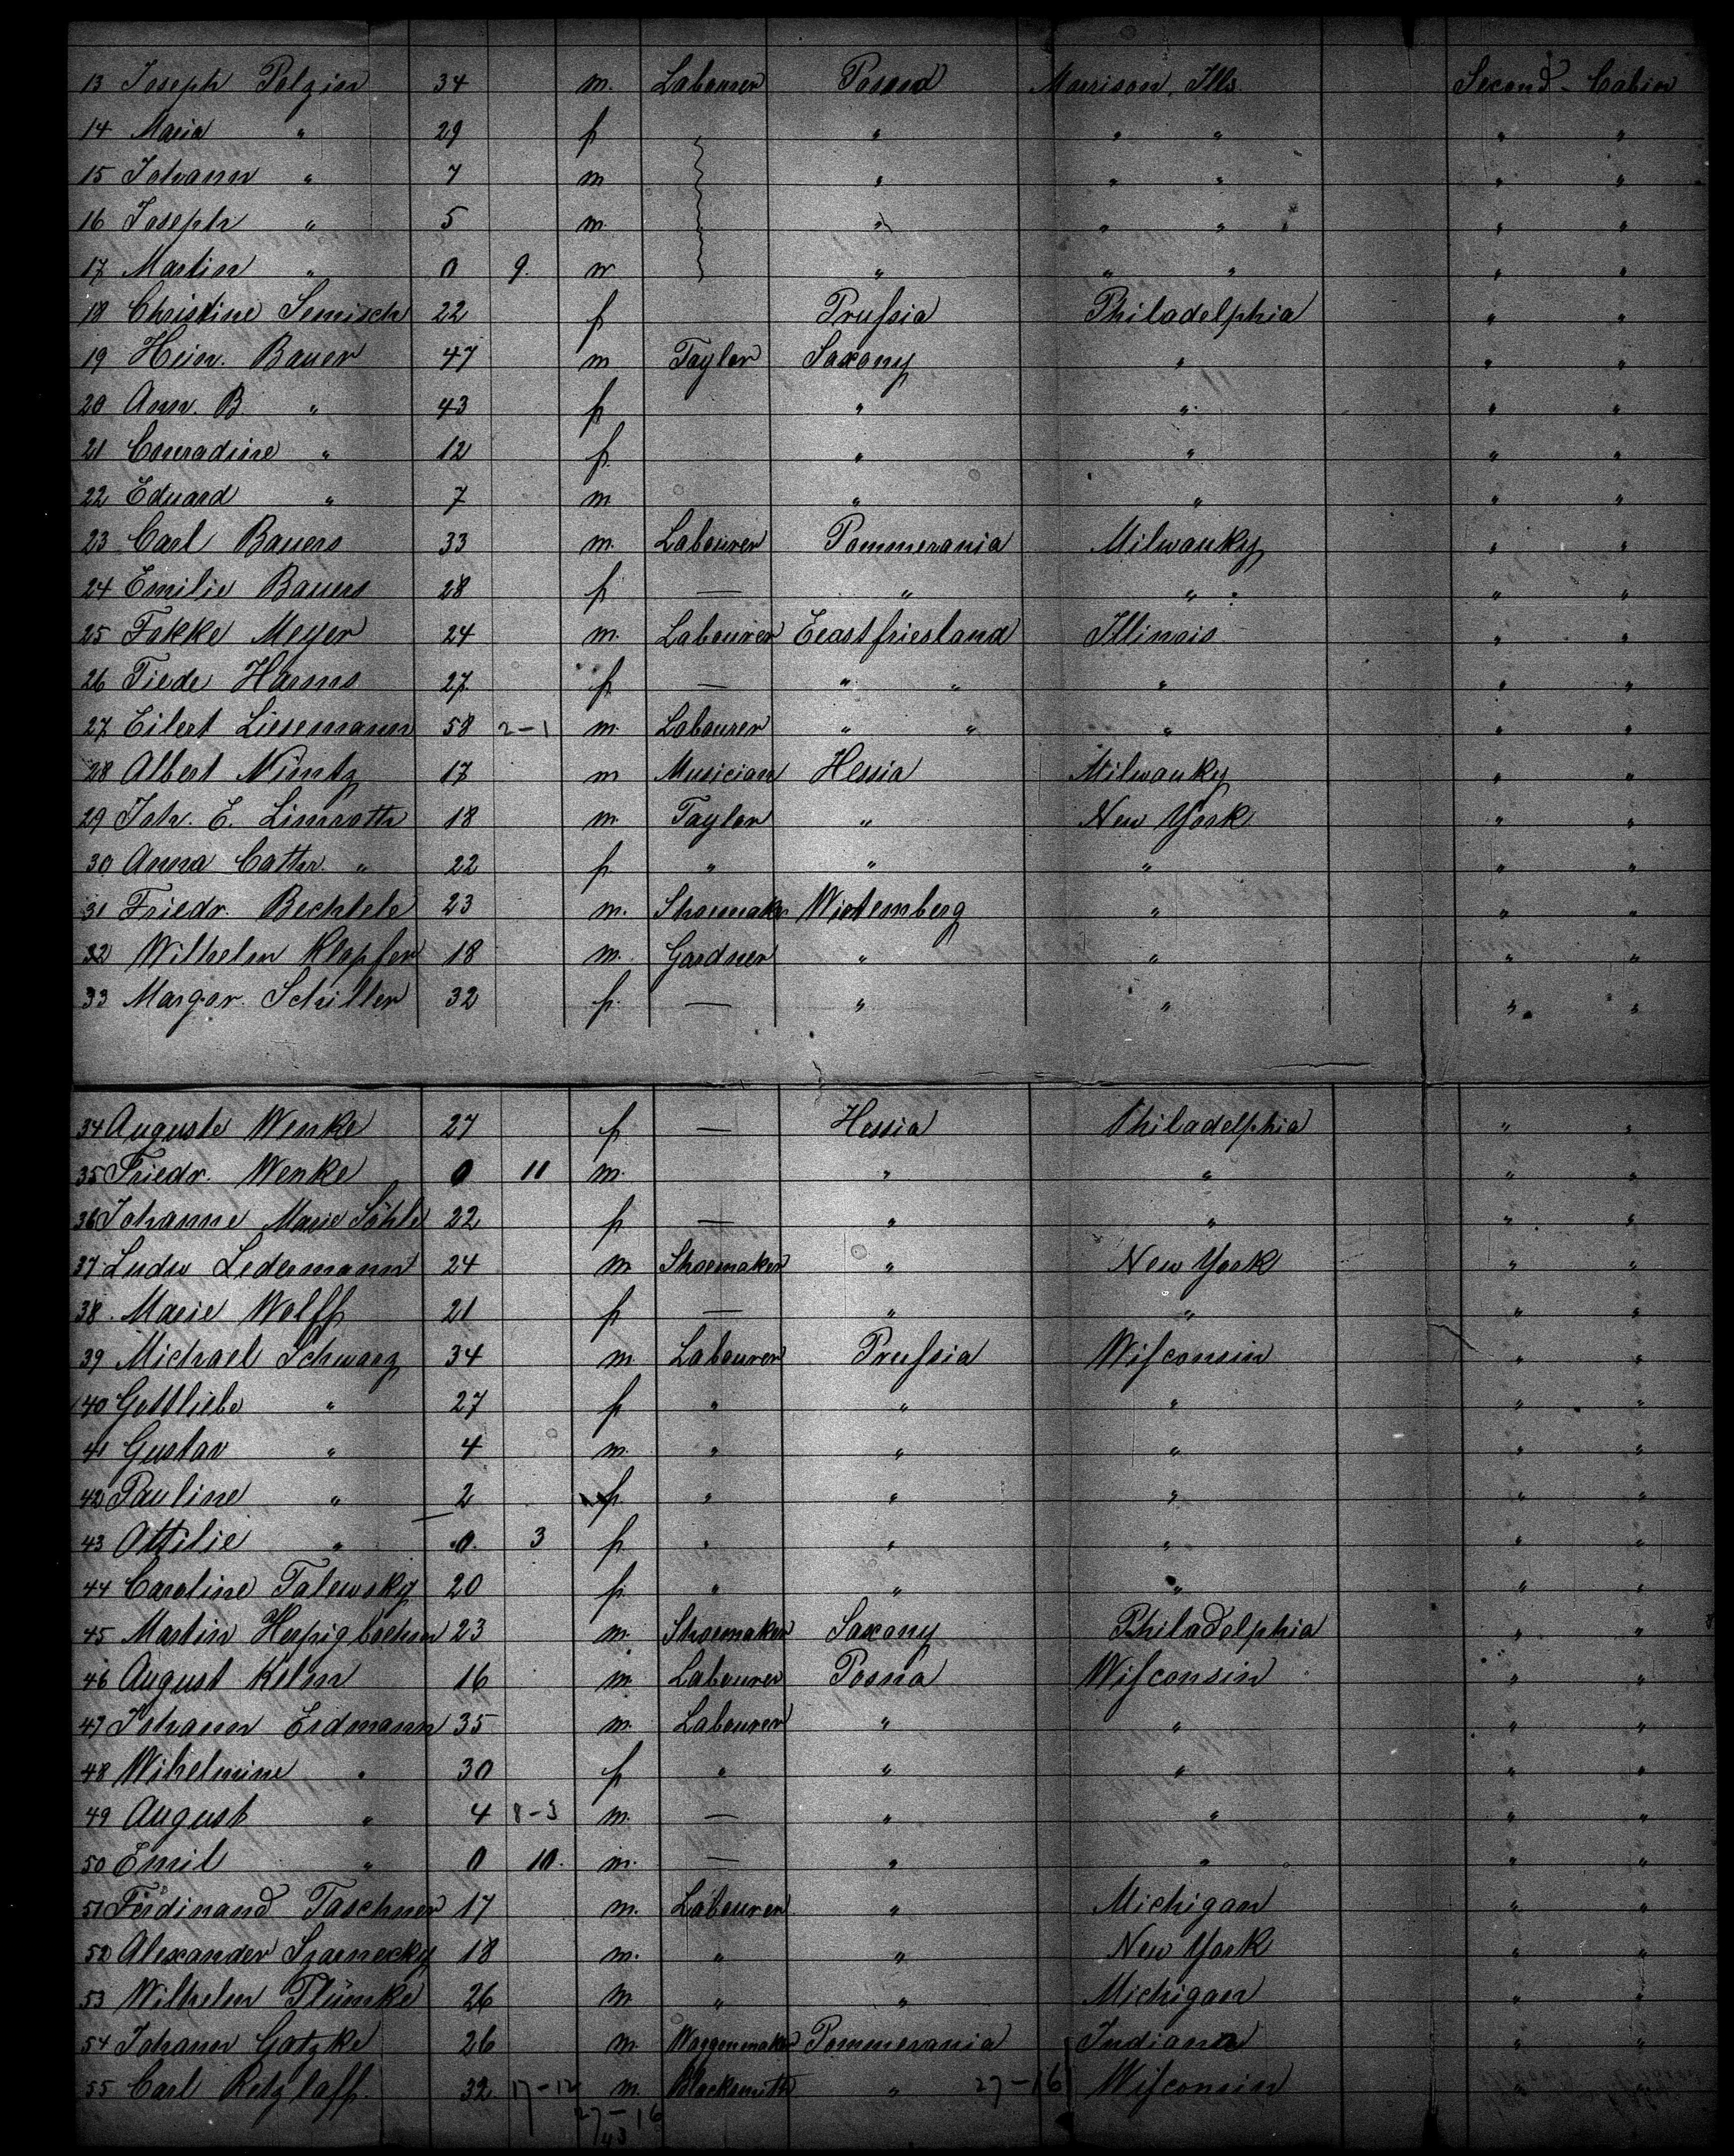 13 Joseph Polzin 34 m. Labourer Posna Morrison, Ills. Second - Cabin
14 Maria " 29 f " " " " "
15 Johann " 7 m " " " " "
16 Joseph " 5 m. " " " " "
17 Martin " 0 9. m " " " " "
18 Christine Semisch 22 f Prussia Philadelphia " "
19 Hein. Bauer 47 m Taylor Saxony " " "
20 Ann. B " 43 f " " " "
21 Conradine " 12 f. " " " "
22 Eduard " 7 m " " " "
23 Carl Bauers 33 m. Labourer Pommerania Milwauky " "
24 Emilie Bauers 28 f — " " " "
25 Fokke Meyer 24 m. Labourer Eeastfriesland Illinois " "
26 Tiede Harms 27. f — " " " " "
27 Eilert Liesemann 58 2-1 m. Labourer " " " " "
28 Albert Nimtz 17 m Musician Hessia Milwauky " "
29 Joh. E. Limroth 18 m. Taylor " New York " "
30 Anna Cath. " 22 f " " " " "
31 Friedr. Bechtele 23 m. Shoemaker Wirtemberg " " "
32 Wilhelm Klopfer 18 m. Gardner " " " "
33 Margar. Schiller 32 f. — " " " "
34 Auguste Wenke 27 f — Hessia Philadelphia " "
35 Friedr. Wenke 0 11 m. " " " "
36 Johanne Marie Söhle 22 f — " " " "
37 Ludw Ledermann 24 m Shoemaker " New York " "
38. Marie Wolff 21 f — " " " "
39 Michael Schwarz 34 m. Labourer Prussia Wisconsin " "
40 Gottliebe " 27 f " " " " "
41 Gustav " 4 m. " " " " "
42 Pauline " 2 f " " " " "
43 Ottilie " 0. 3 f " " " " "
44 Caroline Talewsky 20 f " " " " "
45 Martin 23 m. Shoemaker Saxony Philadelphia " "
46 August Kelm 16 m. Labourer Posna Wisconsin " "
47 Johann Erdmann 35 m. Labourer " " " "
48 Wihelmine " 30 f " " " " "
49 August " 4 8-3 m. — " " " "
50 Emil " 0 10. m. — " " " "
51 Ferdinand Taschner 17 m. Labourer " Michigan " "
52 Alexander 18 m. " " New York " "
53 Wilhelm Plümke 26 m " " Michigan " "
54 Johann Gatzke 26 m. Waggonmaker Pommerania Indiana " "
55 Carl Retzlaff. 32 17-12 m. Blacksmith " 27-16 Wisconsin " "
27-16
43